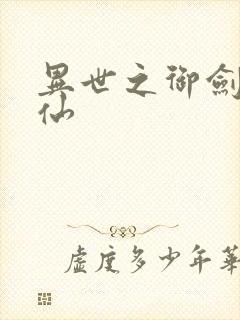 異世之御劍
仙
虛度多少年華